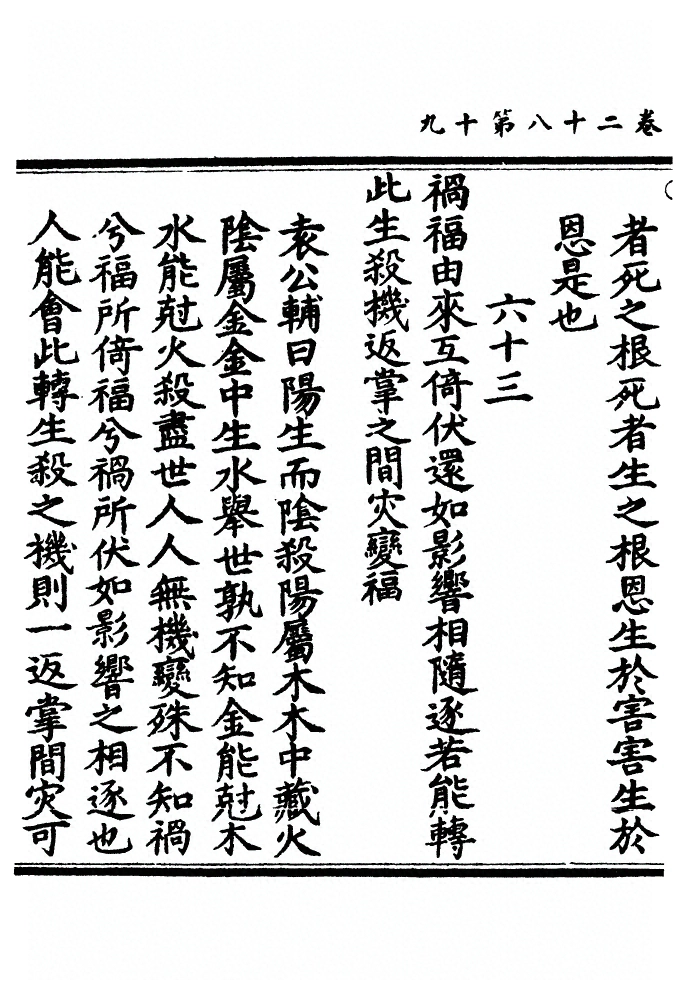 卷二十八第十九
者死之根死者生之根恩生於害害生於
恩是也
六十三
禍福由來互倚伏還如影響相隨逐若能轉
此生殺機返掌之間灾變福
袁公輔曰陽生而陰殺陽屬木木中藏火
陰屬金金中生水舉世孰不知金能尅木
水能尅火殺盡世人人無機變殊不知禍
兮福所倚福兮禍所伏如影響之相逐也
人能會此轉生殺之機則一返掌間灾可